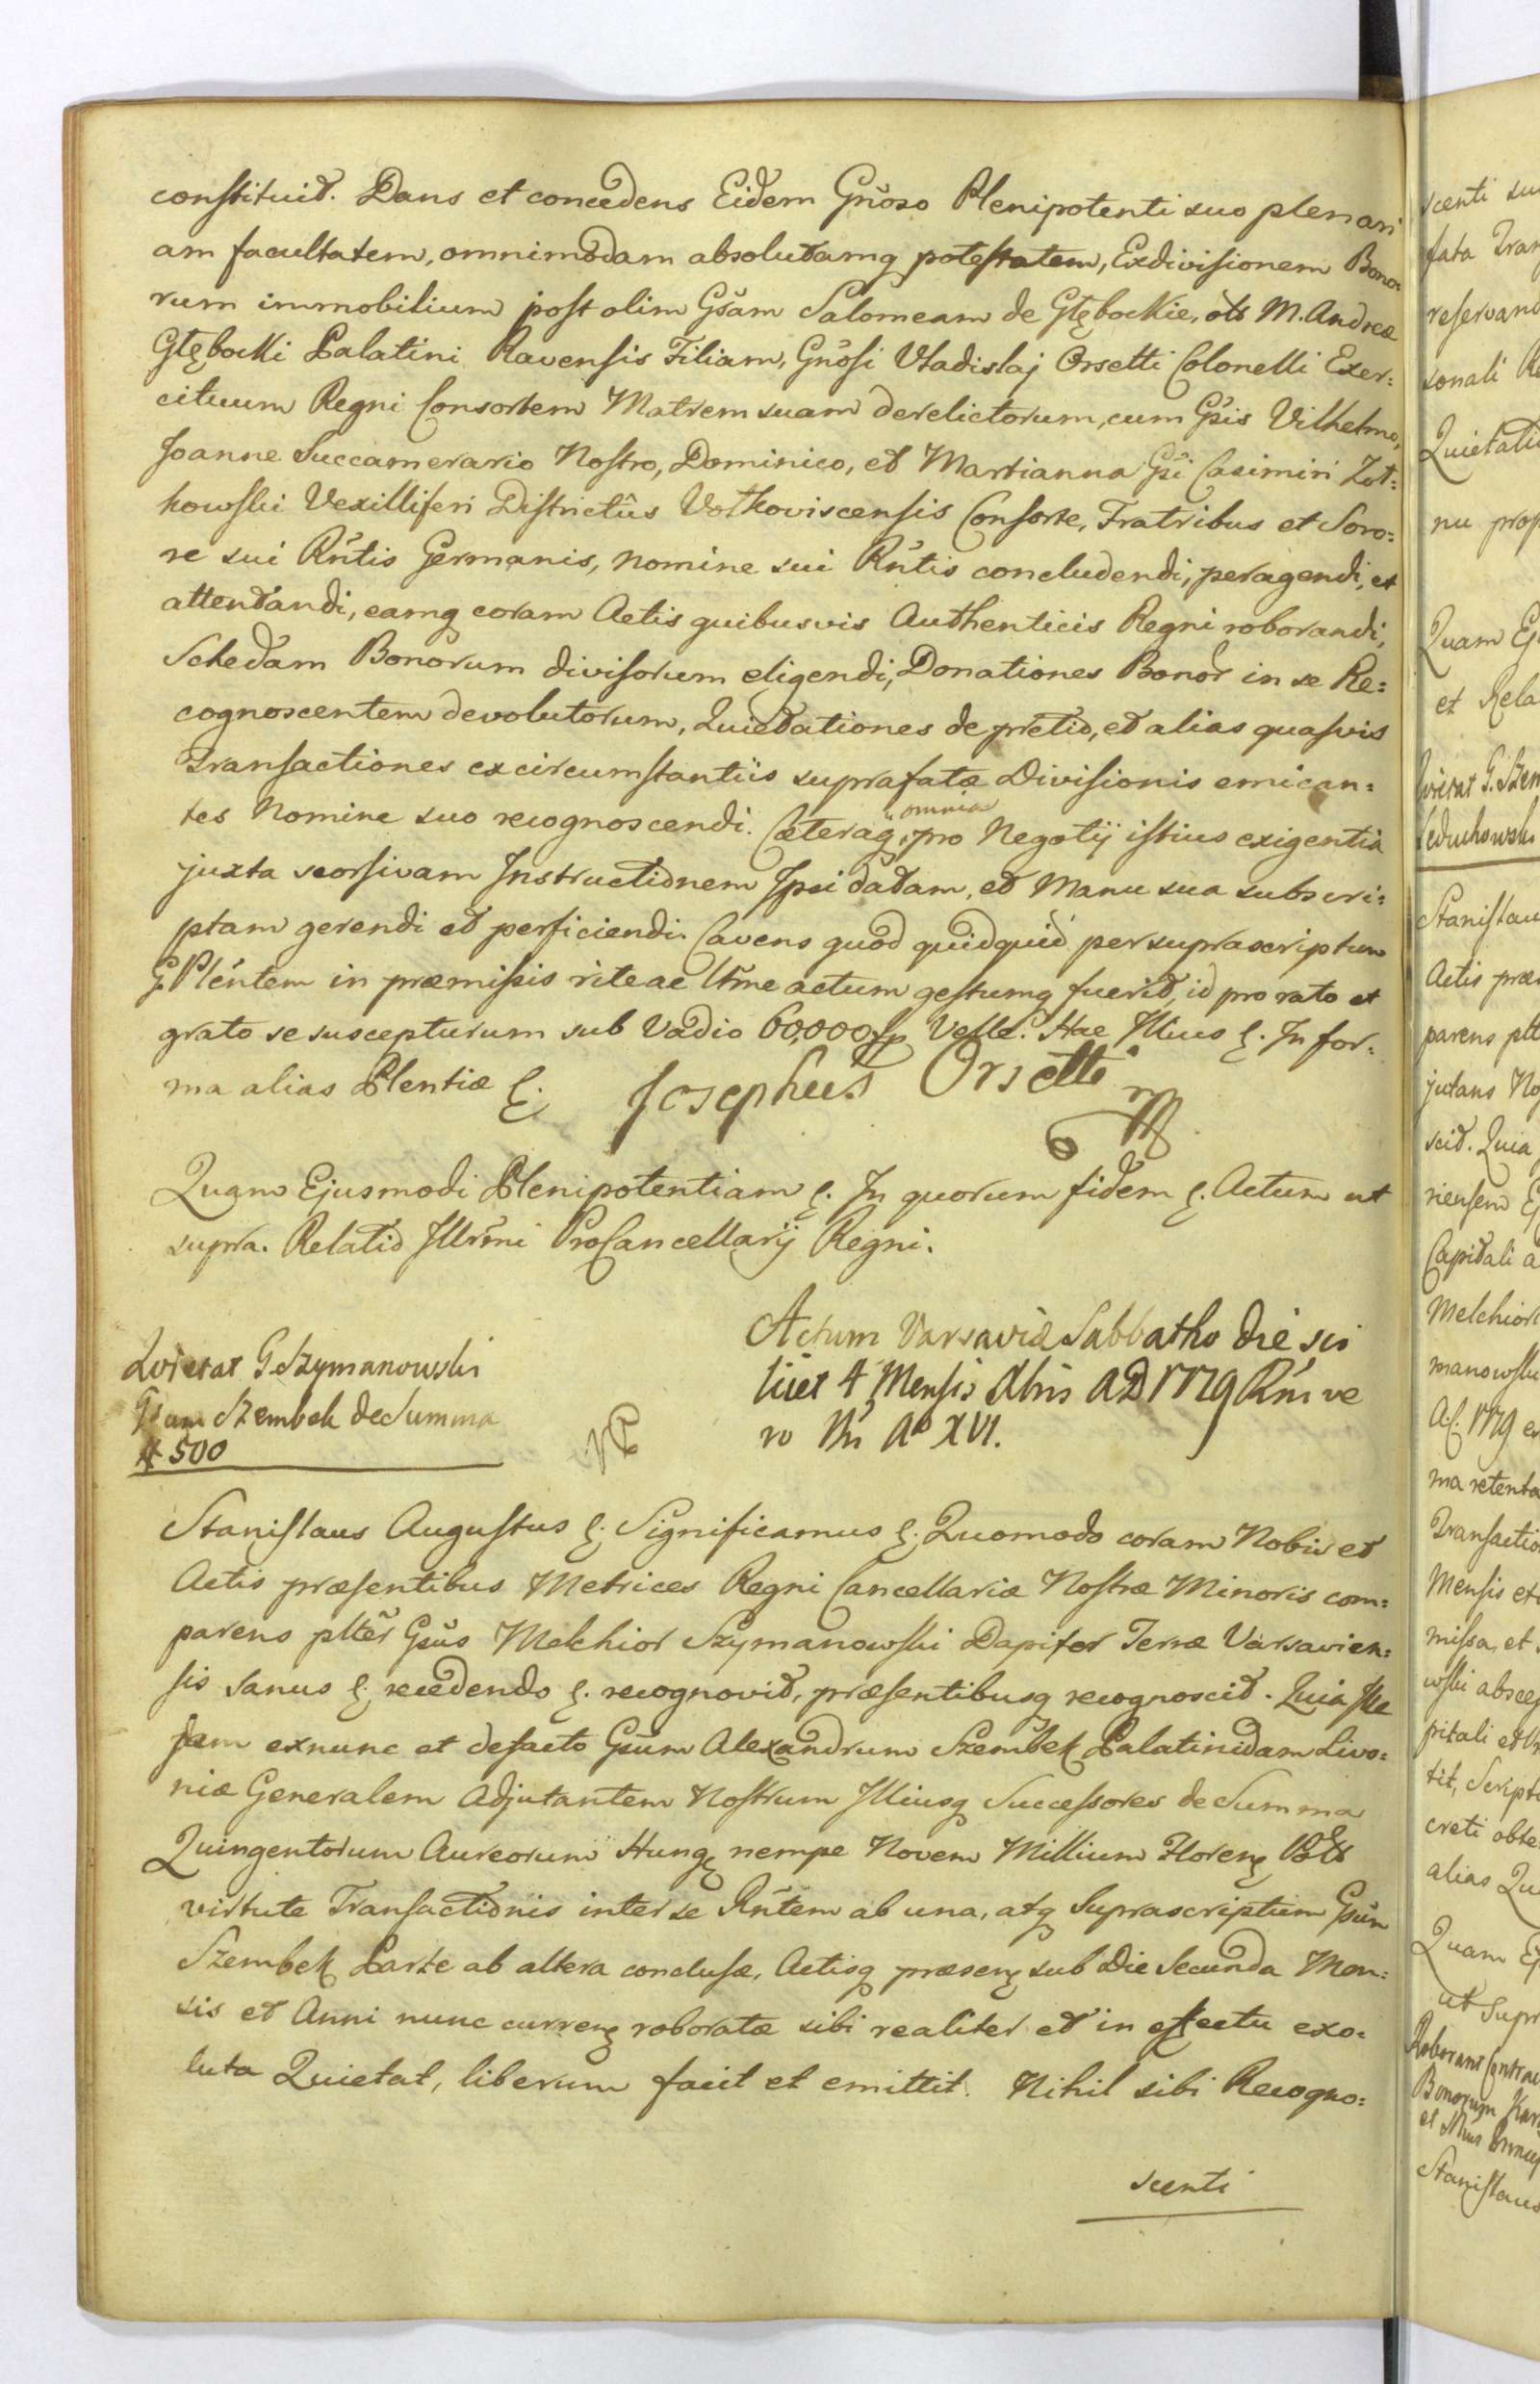 constituit. Dans et concedens Eidem Gnoso Plenipotenti suo plenari
am facultatem, omnimodam absolutamq potestatem, Exdivisionem Bono
rum immobilium post olim Gsam Salomeam de Głębockie, olt M. Andreæ
Głębocki Palatini Ravensis Filiam, Gnosi Vladislaj Orsetti Colonelli Exer:
cituum Regni Consortem Matrem suam derelictorum, cum Gsis Vilhelmo,
Joanne Succamerario Nostro, Dominico, et Martianna Gsi Casimiri Zot:
kowski Vexilliferi Districtûs Volkoviscensis Consorte, Fratribus et Soro:
re sui Rńtis Germanis, nomine sui Rńtis concludendi, peragendi, et
attentandi, eamq coram Actis quibusvis Authenticis Regni roborandi,
Schedam Bonorum divisorum eligendi, Donationes Bonor in se Re:
cognoscentem devolutorum, Quietationes de pretio, et alias quasvis
Transactiones ex circumstantiis suprafatæ Divisionis emican:
tes Nomine suo recognoscendi. Cæteraq omnia pro Negotij istius exigentia
juxta seorsivam Instructionem Ipsi datam, et Manu sua subscri:
ptam gerendi et perficiendi. Cavens quod quidquid per suprascriptum
G. Pleńtem in præmissis rite ac ltme actum gestumq fuerit, id pro rato et
grato se suscepturum sub Vadio 60,000 fp Velle. Hac Illius ę. In for:
ma alias Plentiæ ę. Josephus Orsetti
Quam Ejusmodi Plenipotentiam ę. In quorum fidem ę. Actum ut
supra. Relatio Illrmi ProCancellarij Regni.
Actum Varsaviæ Sabbatho die sci
licet 4 Mensis Xbris AD 1779 Rńi ve
ro Nri Ao XVI.
Quietat G. Szymanowski
Gsum Szembek de Summa
# 500
Stanislaus Augustus ę. Significamus ę. Quomodo coram Nobis et
Actis præsentibus Metrices Regni Cancellariæ Nostræ Minoris com:
parens plter Gsus Melchior Szymanowski Dapifer Terræ Varsavien:
sis sanus ę. recedendo ę. recognovit, præsentibusq recognoscit. Quia Ille
Jam exnunc et defacto Gsum Alexandrum Szembek Palatinidam Livo:
niæ Generalem Adjutantem Nostrum Illiusq Successores de Summa
Quingentorum Aureorum Hung nempe Novem Millium Floren Polts
virtute Transactionis inter se Rńtem ab una, atq Suprascriptum Gsum
Szembek Parte ab altera conclusæ, Actisq præsen sub Die Secunda Men:
sis et Anni nunc curren roboratæ sibi realiter et in effectu exo:
luta Quietat, liberum facit et emittit. Nihil sibi Recogno:
scenti
scenti su
fata Tran
reservand
sonali Re
Quietati
nu prop
Quam Ej
et Rela
Quietat G. Szem
Leduchowski
Stanislau
Actis præs
parens plt
jutans No
scit. Quia
riensem
Capitali a
Melchior
manowski
A.C. 1779 e
ma retenta
Transactio
Mensis et
missa, et
wski absce
pitali et
tit, Script
creti obte
alias Qu
Quam Ej
ut Supr
Roborant Contrac
Bonorum Kar
Stanislaus